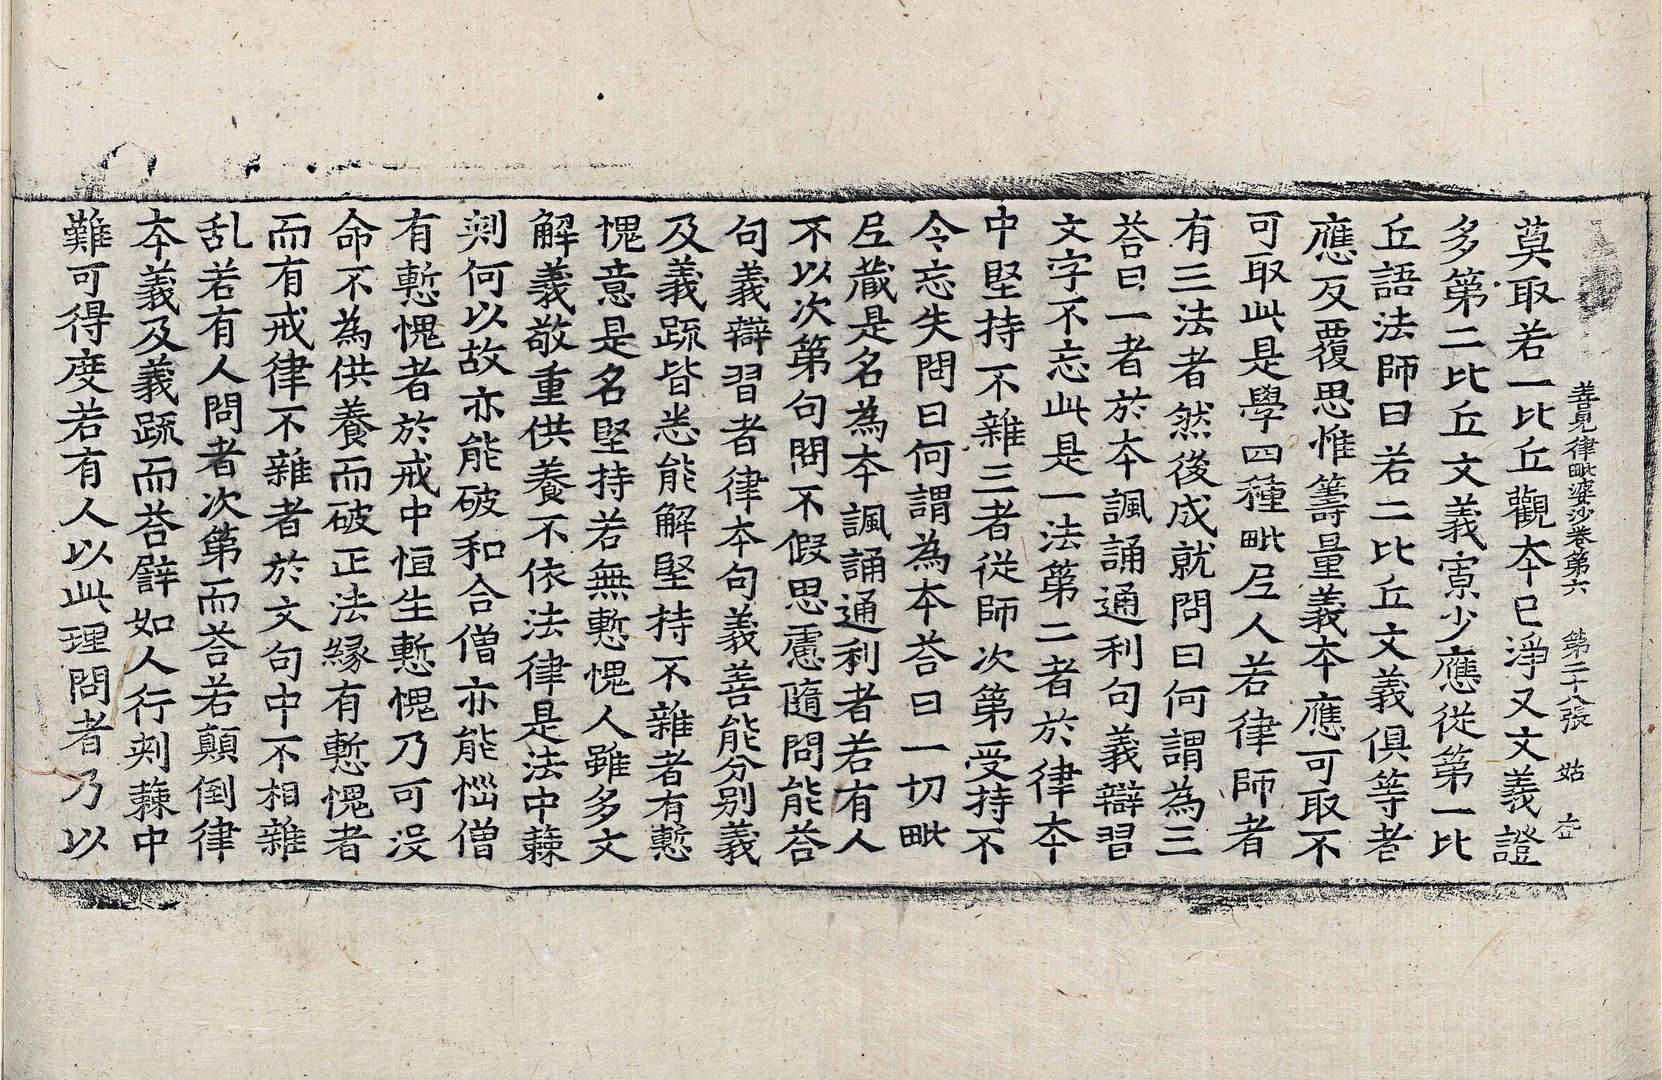 善見律毗婆沙卷第六 第二十八張 姑
莫取若一比丘觀本已淨又文義證
多第二比丘文義寡少應從第一比
丘語法師曰若二比丘文義俱等者
應反覆思惟籌量義本應可取不
可取此是學四種毗尼人若律師者
有三法者然後成就問曰何謂為三
荅曰一者於本諷誦通利句義辯習
文字不忘此是一法第二者於律本
中堅持不雜三者從師次第受持不
令忘失問曰何謂為本荅曰一切毗
尼藏是名為本諷誦通利者若有人
不以次第句問不假思慮隨問能荅
句義辯習者律本句義善能分別義
及義疏皆悉能解堅持不雜者有慙
愧意是名堅持若無慙愧人雖多文
解義敬重供養不依法律是法中𧂐
刾何以故亦能破和合僧亦能惱僧
有慙愧者於戒中恒生慙愧乃可沒
命不為供養而破正法緣有慙愧者
而有戒律不雜者於文句中不相雜
乱若有人問者次第而荅若顛倒律
本義及義疏而荅譬如人行刾𧂐中
難可得度若有人以此理問者乃以